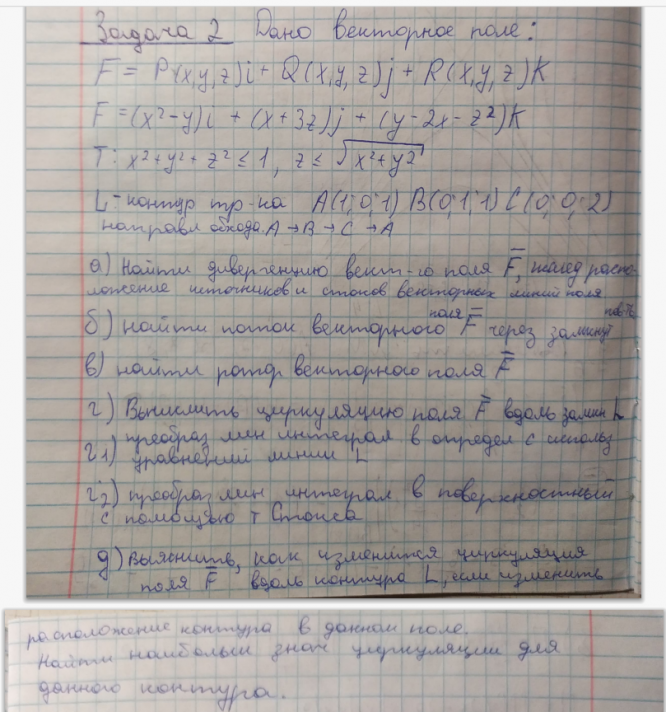 Задача 2 Дано векторное поле:
F = P(x,y,z)i + Q(x,y,z)j + R(x,y,z)K
F = (x²-y)i + (x+3z)j + (y-2x-z²)K
T: x²+y²+z² ≤ 1, z ≤ √x²+y²
L - контур тр-ка A(1;0;1) B(0;1;1) C(0;0;2)
направл обхода. A → B → C → A
а) Найти дивергенцию вект-го поля F̅, исслед распо-
ложение источников и стоков векторных линий поля
б) найти поток векторного поля F̅ через замкнут пов-ть
в) найти ротор векторного поля F̅
г) Вычислить циркуляцию поля F̅ вдоль замкн L
г.1) преобраз лин интеграл в определ с использ
уравнений линии L
г.2) преобраз лин интеграл в поверхностный
с помощью т Стокса
д) Выяснить, как изменится циркуляция
поля F̅ вдоль контура L, если изменить
расположение контура в данном поле.
Найти наибольш знач циркуляции для
данного контура.